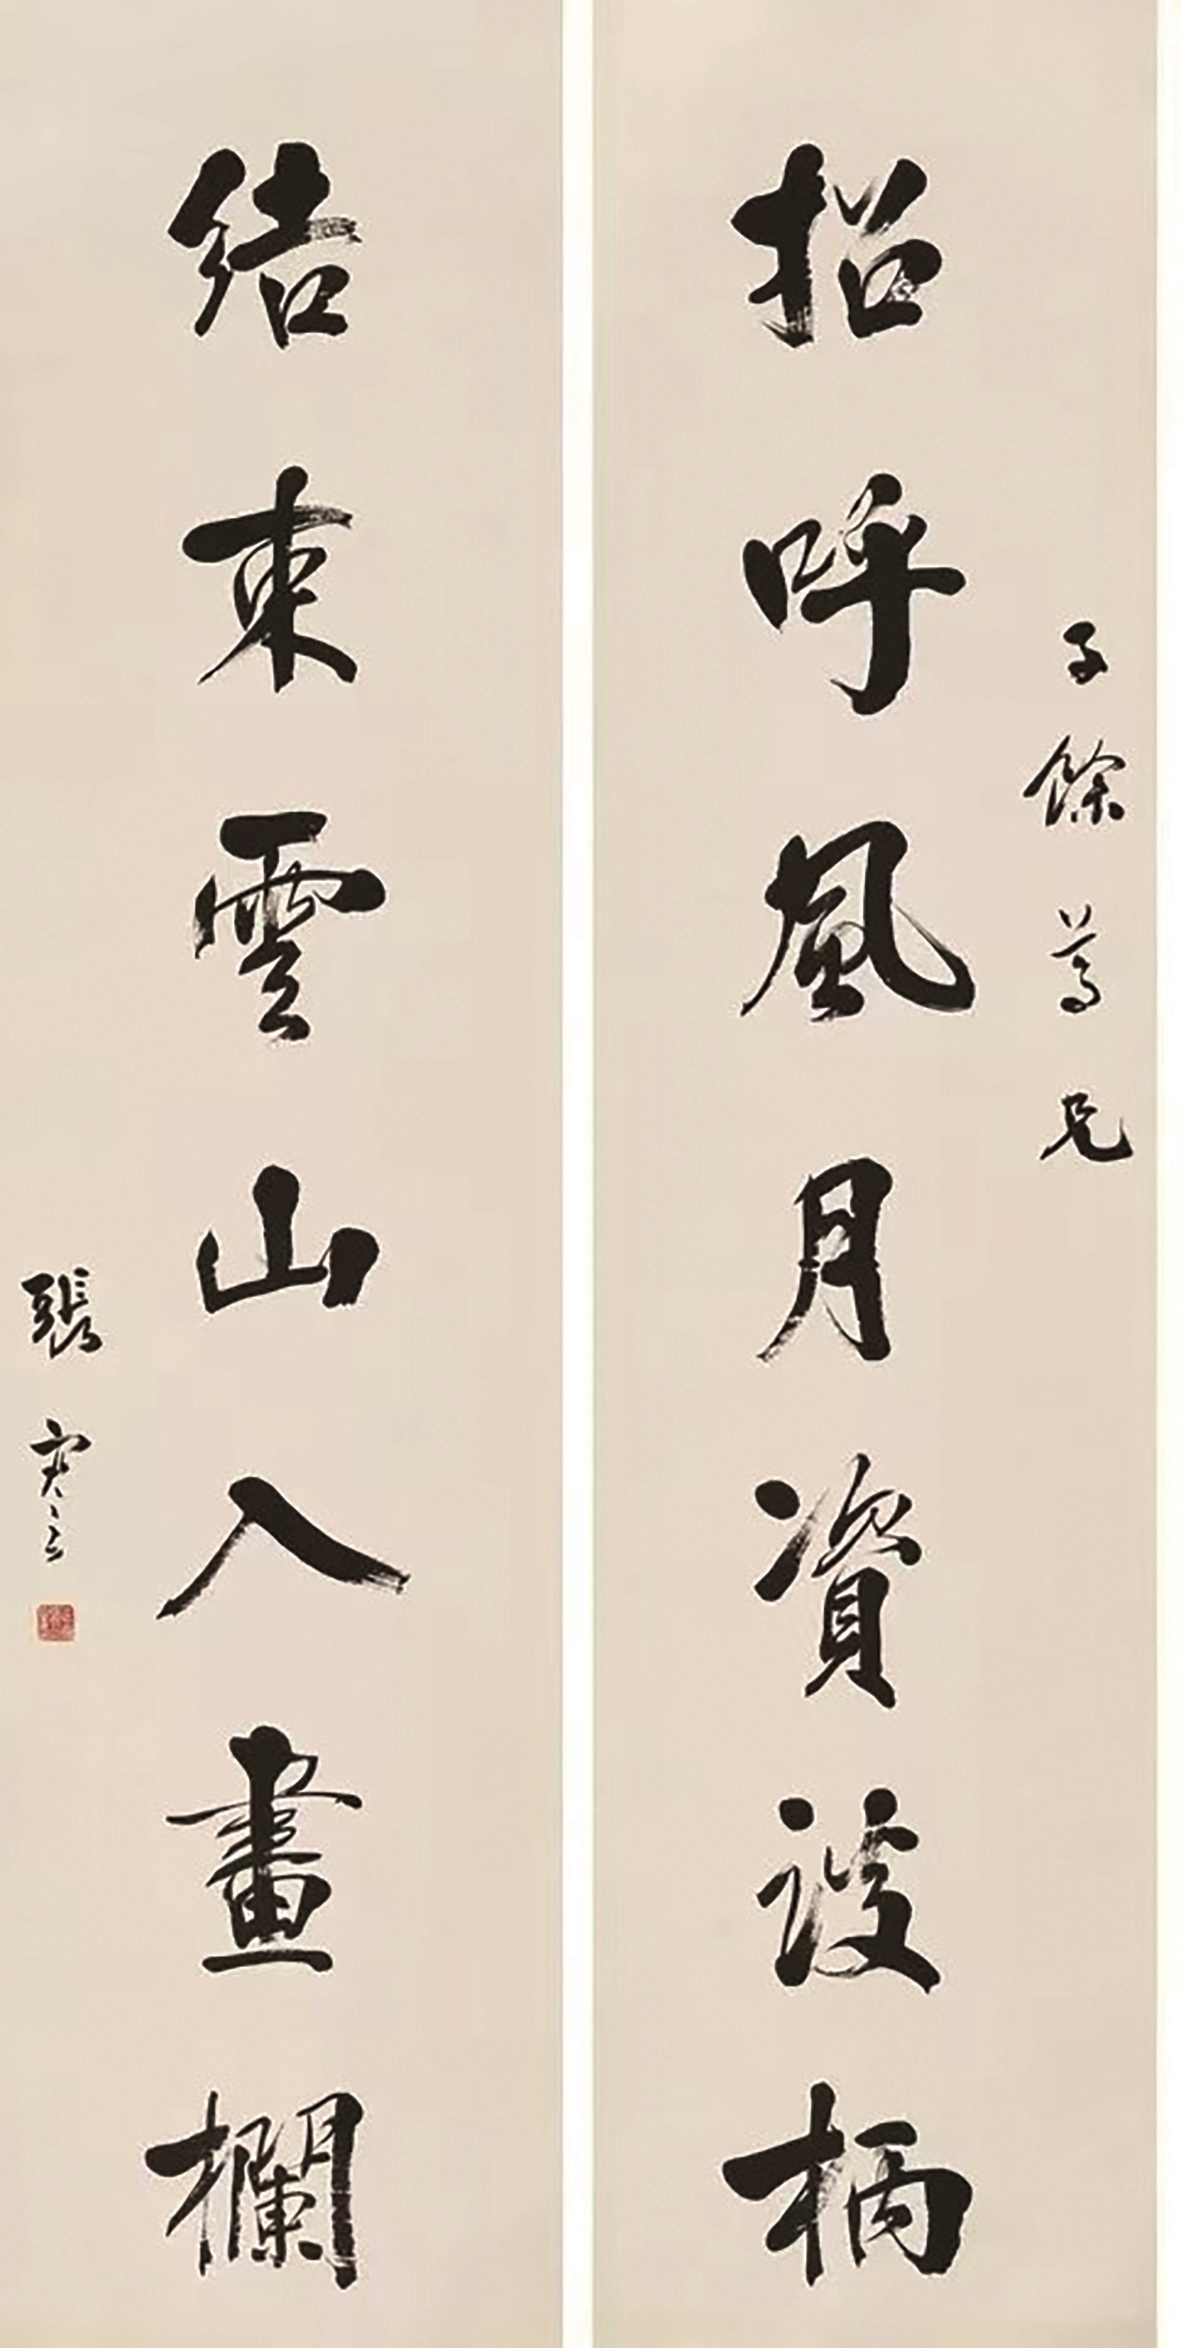 子餘尊兄
招呼風月資談柄
結束雲山入畫欄
張謇